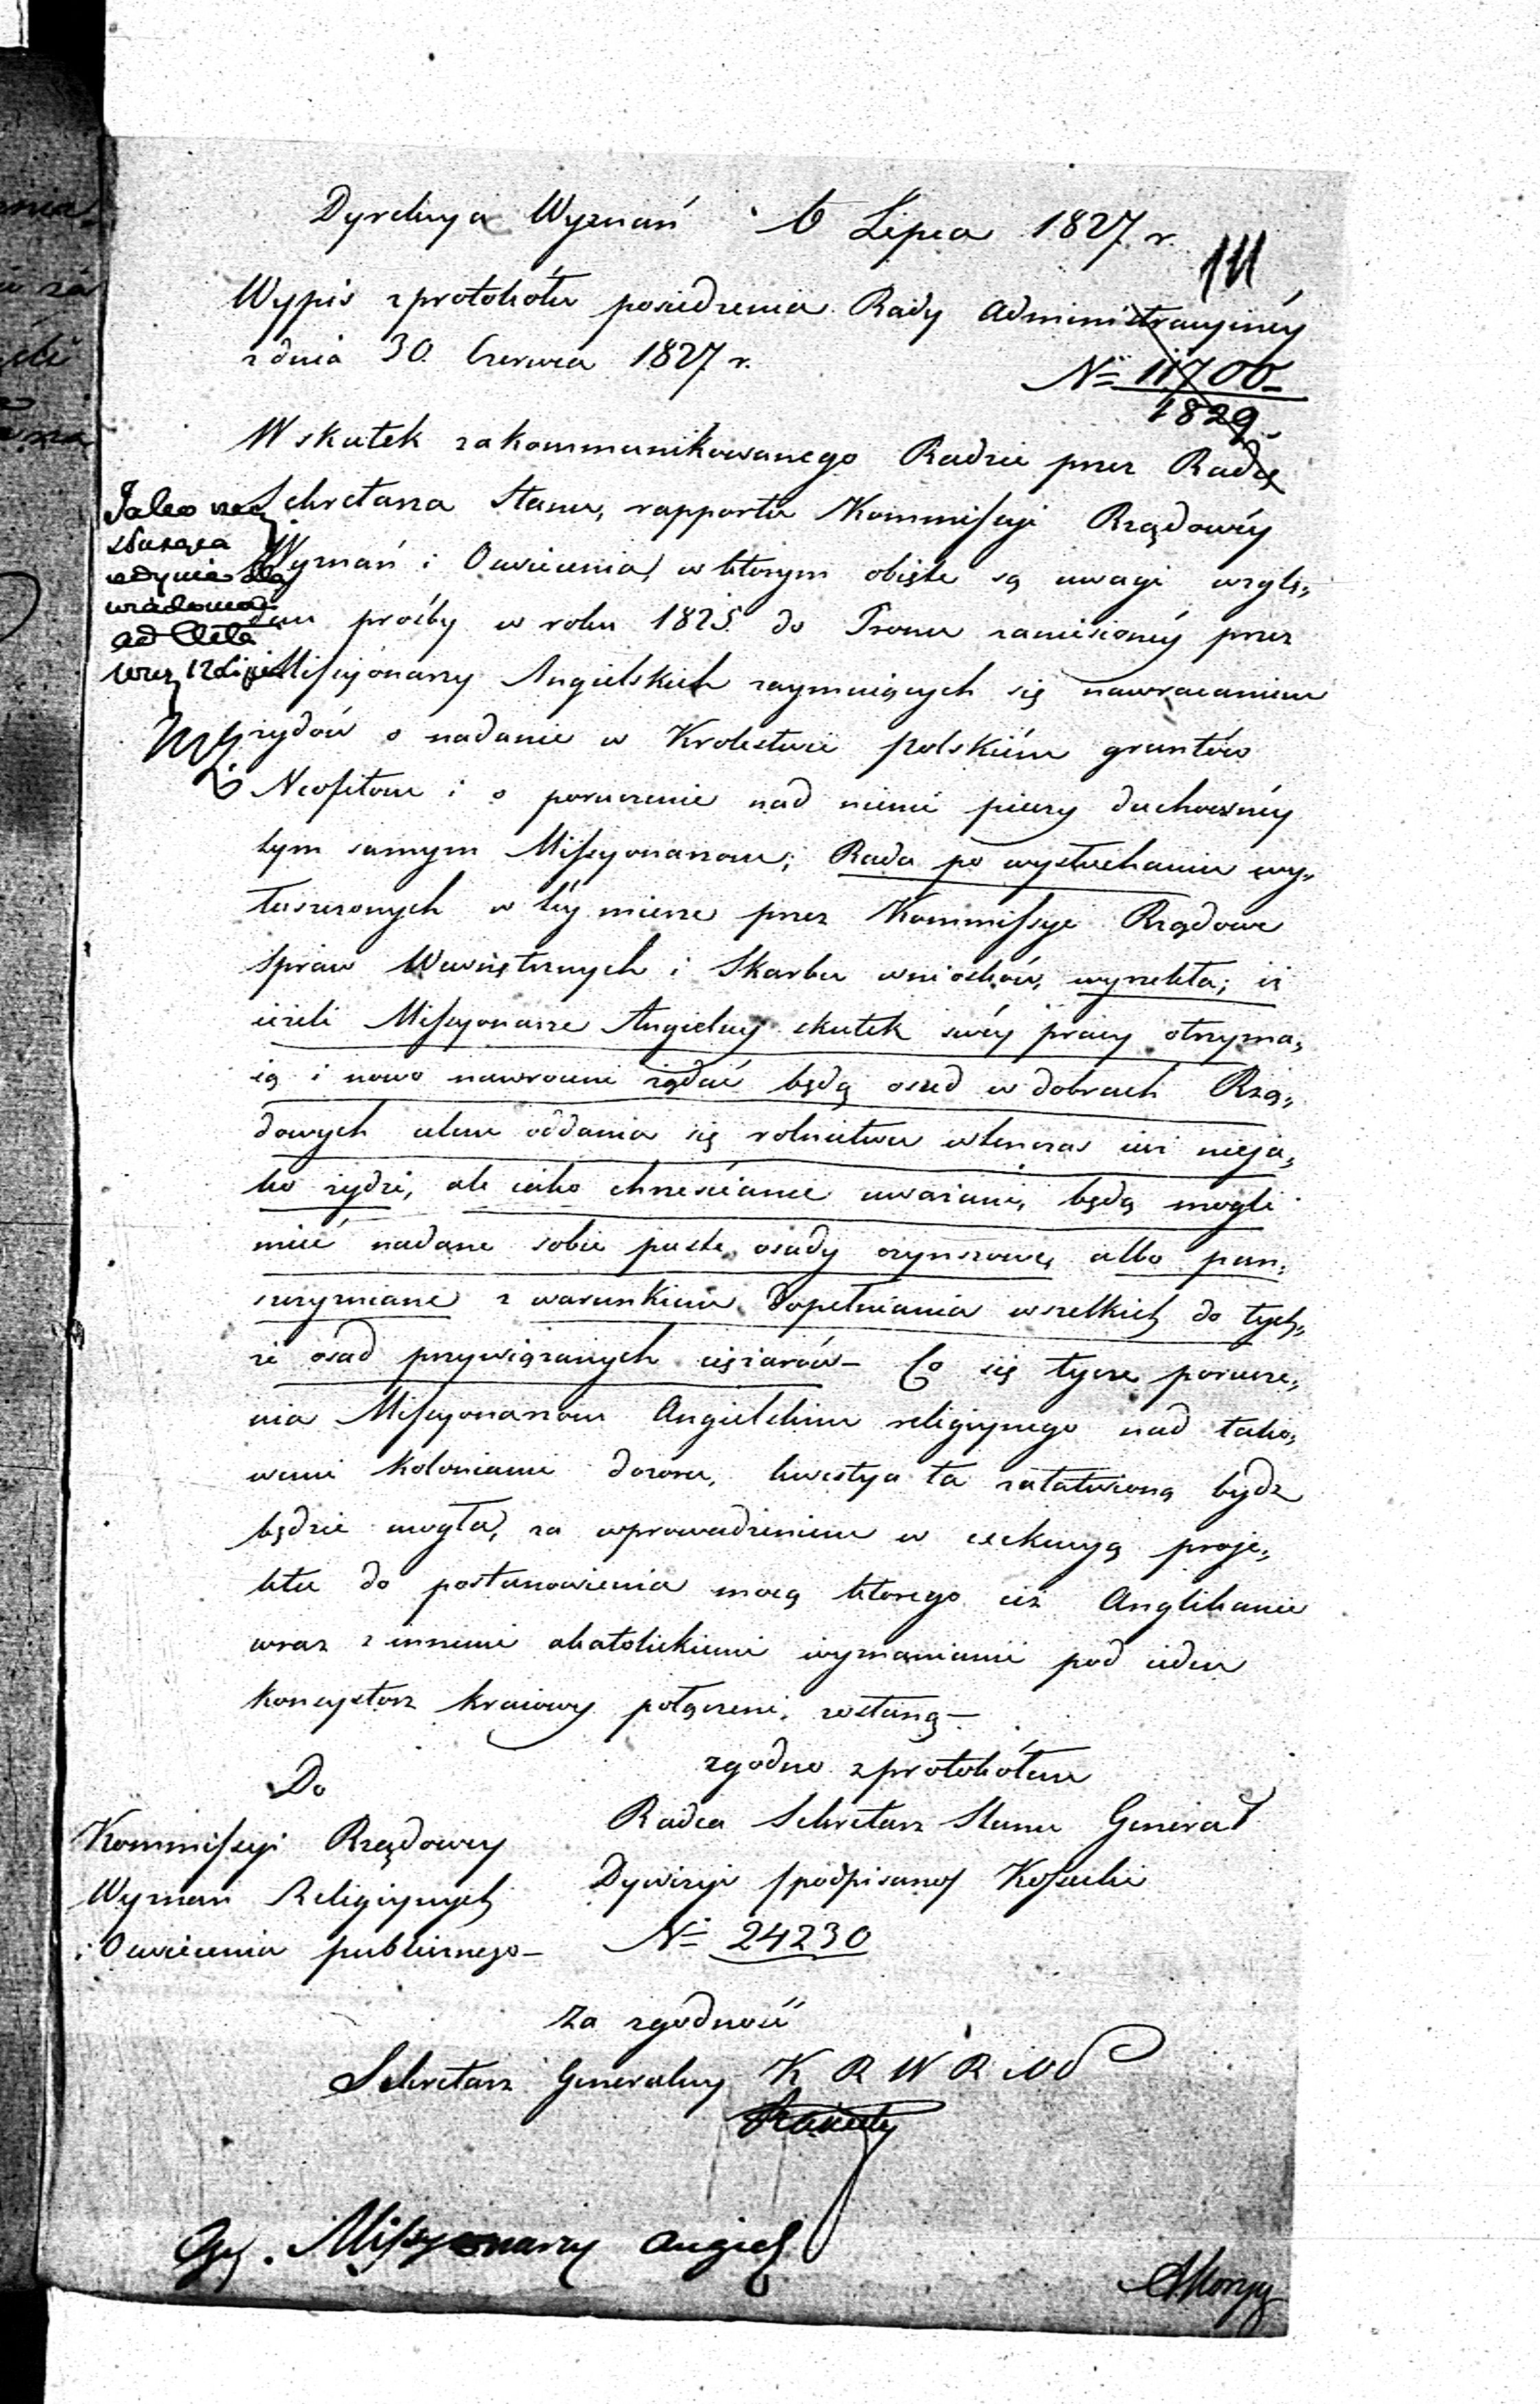 Dyrekcya Wyznań 6 Lipca 1827 r.
111
Wypis z protokółu posiedzenia Rady Administracyinéy
z dnia 30. Czerwca 1827 r.
No 11706
1829.
W skutek zakommunikowanego Radzie przez Radcę
Sekretarza Stanu, rapportu Kommissyi Rządowéy
Wyznań i Oświecenia, w którym obięte są uwagi wzglę„
dem prośby w roku 1825. do Tronu zaniesionéy przez
Missyonarzy Angielskich zaymuiących się nawracaniem
żydów o nadanie w Krolestwie polskiém gruntów
Neofitom i o poruczenie nad niemi pieczy duchownéy
tym samym Missyonarzom; Rada po wysłuchaniu wy„
łuszczonych w téy mierze przez Kommissye Rządowe
Spraw Wewnętrznych i Skarbu wniosków, wyrzekła; iż
ieżeli Missyonarze Angielscy skutek swéy pracy otrzyma„
ią i nowo nawroceni żądać będą osad w dobrach Rzą„
dowych celem oddania się rolnictwu wtenczas iuż nieja„
ko żydzi, ale iako chrześcianie uważani, będą mogli
mieć nadane sobie puste osady czynszowe, albo pan„
szczyzniane z warunkiem dopełniania wszelkich do tych„
że osad przywiązanych ciężarów – Co się tycze porucze„
nia Missyonarzom Angielskim religiynego nad tako„
wemi koloniami dozoru, kwestya ta załatwioną bydz
będzie mogła, za wprowadzeniem w exekucyą proje„
ktu do postanowienia mocą którego iuż Anglikanie
wraz z innemi akatolickiemi wyznaniami pod ieden
konsystorz kraiowy połączeni, zostaną –
zgodno z protokółem
Radca Sekretarz Stanu Generał
Dywizyi /podpisano/ Kossecki
No 24230
Do
Kommissyi Rządowey
Wyznań Religiynych
i Oświecenia publicznego –
Za zgodność
Sekretarz Generalny K R W R i O P
Jako
służąca
jedynie dla
wiadomości
ad acta
Missyonarzy angiel